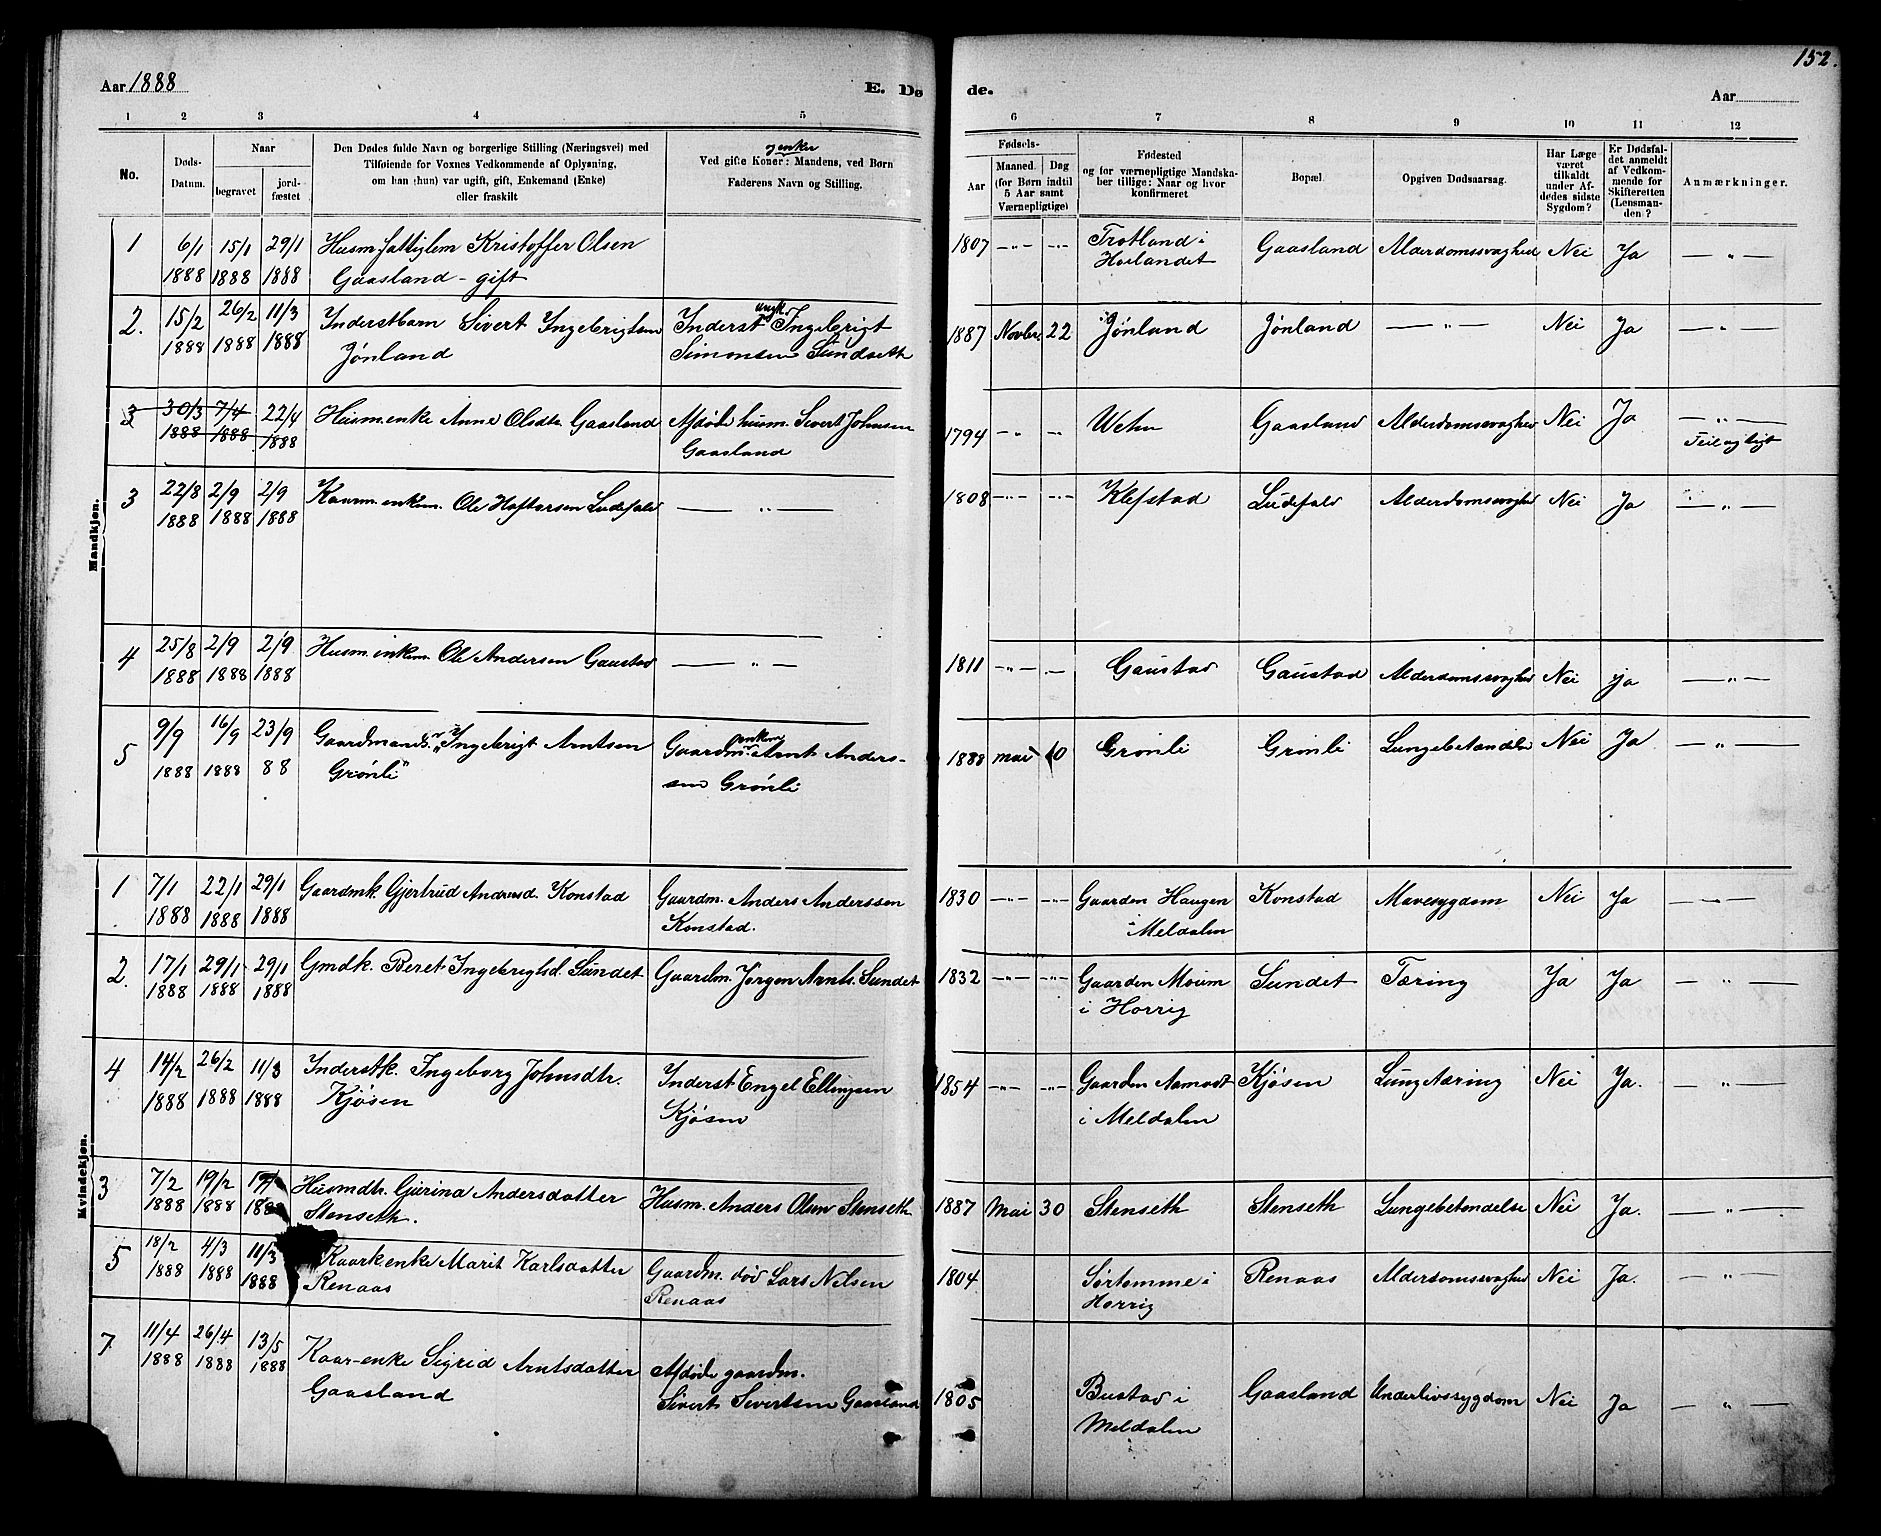 152.
Aar 1888
E. Dø
de.
Aar
1 2 3 4 5 6 7 8 9 10 11 12
No.
Døds-Datum.
Naar
begravet
jordfæstet
Den Dødes fulde Navn og borgerlige Stilling (Næringsvei) med
Tilføiende for Voxnes Vedkommende af Oplysning,
om han (hun) var ugift, gift, Enkemand (Enke)
eller fraskilt
Ved gifte Koner: Mandens, ved Børn
Faderens Navn og Stilling.
Fødsels-
Aar
Maaned. Døg
(for Børn indtil
5 Aar samt
Værnepligtige)
Fødested
og for værnepligtige Mandska-
ber tillige: Naar og hvor
konfirmeret
Bopæl.
Opgiven Dødsaarsag.
Har Læge
været
tilkaldt
under Af-
dødes sidste
Sygdom?
Er Dødsfal-
det anmeldt
af Vedkom-
mende for
Skifteretten
(Lensman-
den?
Anmærkninger.
Mandkjøn.
1 6/1 15/1 29/1 Husm. fattiglem Kristoffer Olsen 1807 -"- -"- Gaasland Alderdomssvaghed Nei Ja - " -
1888 1888 1888 Gaasland - gift
2. 15/2 26/2 11/3 Inderstbarn Sivert Ingebrigtsen Inderst ungk. Ingebrigt 1887 Novbr. 22 Jønland Jønland - " - Nei Ja - " -
1888 1888 1888 Jønland Simonsen Sundseth
3 30/3 7/4 22/4 Husm.enke Anne Olsdtr. Gaasland Afdøde husm. Sivert Johnsen 1794 -"- -"- Gaasland Alderdomssvaghed Nei Ja - " -
1888 1888 1888 Gaasland
3 22/8 2/9 2/9 Kaarm. enkem. Ole Ludefald - " - 1808 -"- -"- Klefstad Ludefald Alderdomssvaghed Nei Ja - " -
1888 1888 1888
4 25/8 2/9 2/9 Husm. enkem. Ole Andersen Gaustad - " - 1811 -"- - Gaustad Gaustad Alderdomssvaghed Nei ja - " -
1888 1888 1888
5 9/9 16/9 23/9 Gaardmands. Ingebrigt Arntsen Gaardm. enkem. Arnt Anders- 1888 mai 10 Grønli Grønli Lungebetændelse Nei Ja - " -
1888 1888 88 Grønli sen Grønli
Kvindekjøn.
1 7/1 22/1 29/1 Gaardmk. Gjertrud Andersd. Konstad Gaardm. Anders Anderssen 1830 -"- -"- Gaarden Haugen Konstad Mavesygdom Nei Ja - " -
1888 1888 1888 Konstad. i Meldalen
2. 17/1 29/1 29/1 Gmdk. Beret Ingebrigtsd. Sundet Gaardm. Jørgen Arnts. Sundet 1832 -"- -"- Gaarden Moum Sundet Tæring Ja Ja - " -
1888 1888 1888 i Horrig
4 14/2 26/2 11/3 Inderstk. Ingeborg Johnsdtr. Inderst Engel Ellingsen 1854 -"- -"- Gaarden Aamodt Kjøsen Lungetæring Nei Ja. - " -
1888 1888 1888 Kjøsen Kjøsen i Meldalen
3 7/2 19/2 Husmdtr. Gurina Andersdatter Husm. Anders Olsen Stenseth 1887 Mai 30 Stenseth Stenseth Lungebetændelse Nei Ja. - " -
1888 1888 Stenseth.
5 18/2 4/3 11/3 Kaark.enke Marit Karlsdatter Gaardm. død Lars Nilsen 1804 Sørtømme i Renaas Alderdomssvaghed Nei Ja. - " -
1888 1888 1888 Renaas Renaas Horrig
7 11/4 26/4 13/5 Kaar-enke Sigrid Arntsdatter Afdøde gaardm. 1805 Bustad i Gaasland Underlivssygdom Nei Ja - " -
1888 1888 1888 Gaasland Sivert Sivertsen Gaasland Meldalen